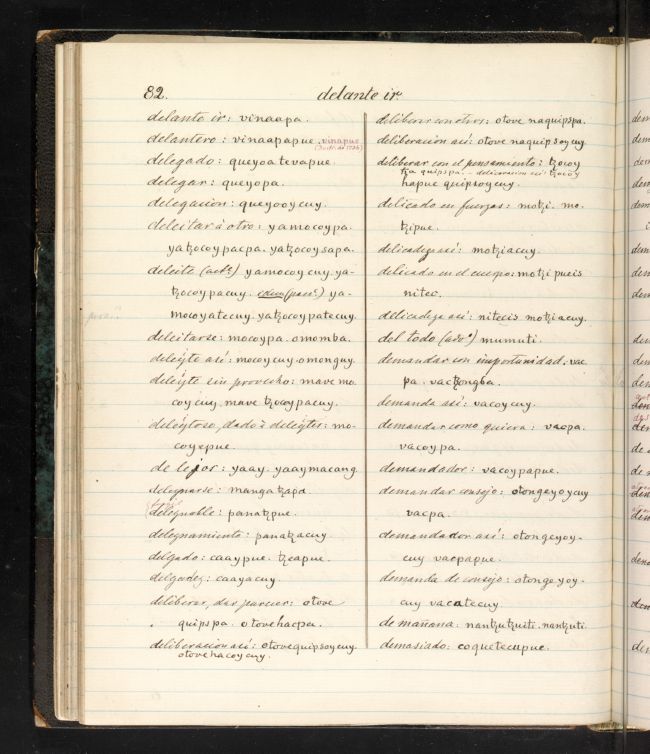 82.
delante ir.
delante ir: vinaapa.
delantero: vinaapapue. vinapue
delegado: queyoatevapue.
delegar: queyopa.
delegacion: queyooycuy.
deleitar á otro: yamocoypa.
yatzocoypacpa. yatzocoysapa.
deleite (act.) yamocoycuy. ya-
tzocoypacuy. idem (pas.) ya-
mocoyatecuy. yatzocoypatecuy.
deleitarse: mocoypa. omomba.
deleyte asi: mocoycuy. omonguy.
deleyte sin provecho: mave mo
coycuy. mave tzocoypacuy.
deleytoso, dado á deleytes: mo-
coyepue.
de lejos: yaay. yaaymacang.
deleznarse: mangatzapa.
deleznable: panatzpue.
deleznamiento: panatzacuy.
delgado: caaypue. tzeapue.
delgadez: caayacuy.
deliberar, dar parecer: otove
quipspa. otovehacpa.
deliberacion asi: otovequipsoycuy.
otovehacoycuy.
deliberar con otros: otove naquipspa.
deliberacion asi: otove naquipsoycuy.
deliberar con el pensamiento: tzocoy
tza quipspa. - deliberacion asi: tzocoy
hapue quipsoycuy.
delicado en fuerzas: motzi. mo-
tzipue.
delicadeza asi: motziacuy.
delicado en el cuerpo: motzi pueis
nitec.
delicadeza asi: nitecis motziacuy.
del todo (adv.) mumuti.
demandar con importunidad. vac
pa. vactzongba.
demanda asi: vacoycuy.
demandar como quiera: vacpa.
vacoypa.
demandador: vacoypapue.
demandar consejo: otongeyoycuy
vacpa.
demandador asi: otongeyoy-
cuy vacpapue.
demanda de consejo: otongeyoy-
cuy vacatecuy.
de mañana: nantzutzuiti. nantzuti.
demasiado: coquetecupue.